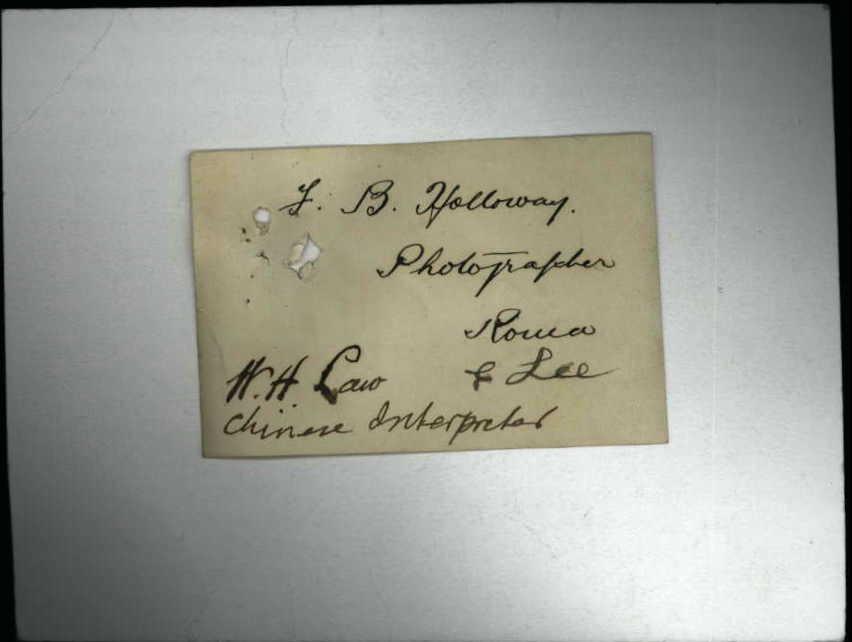 F. B. Holloway.
Photographer
Roma
W. H Law & Lee
Chinese Interpreter